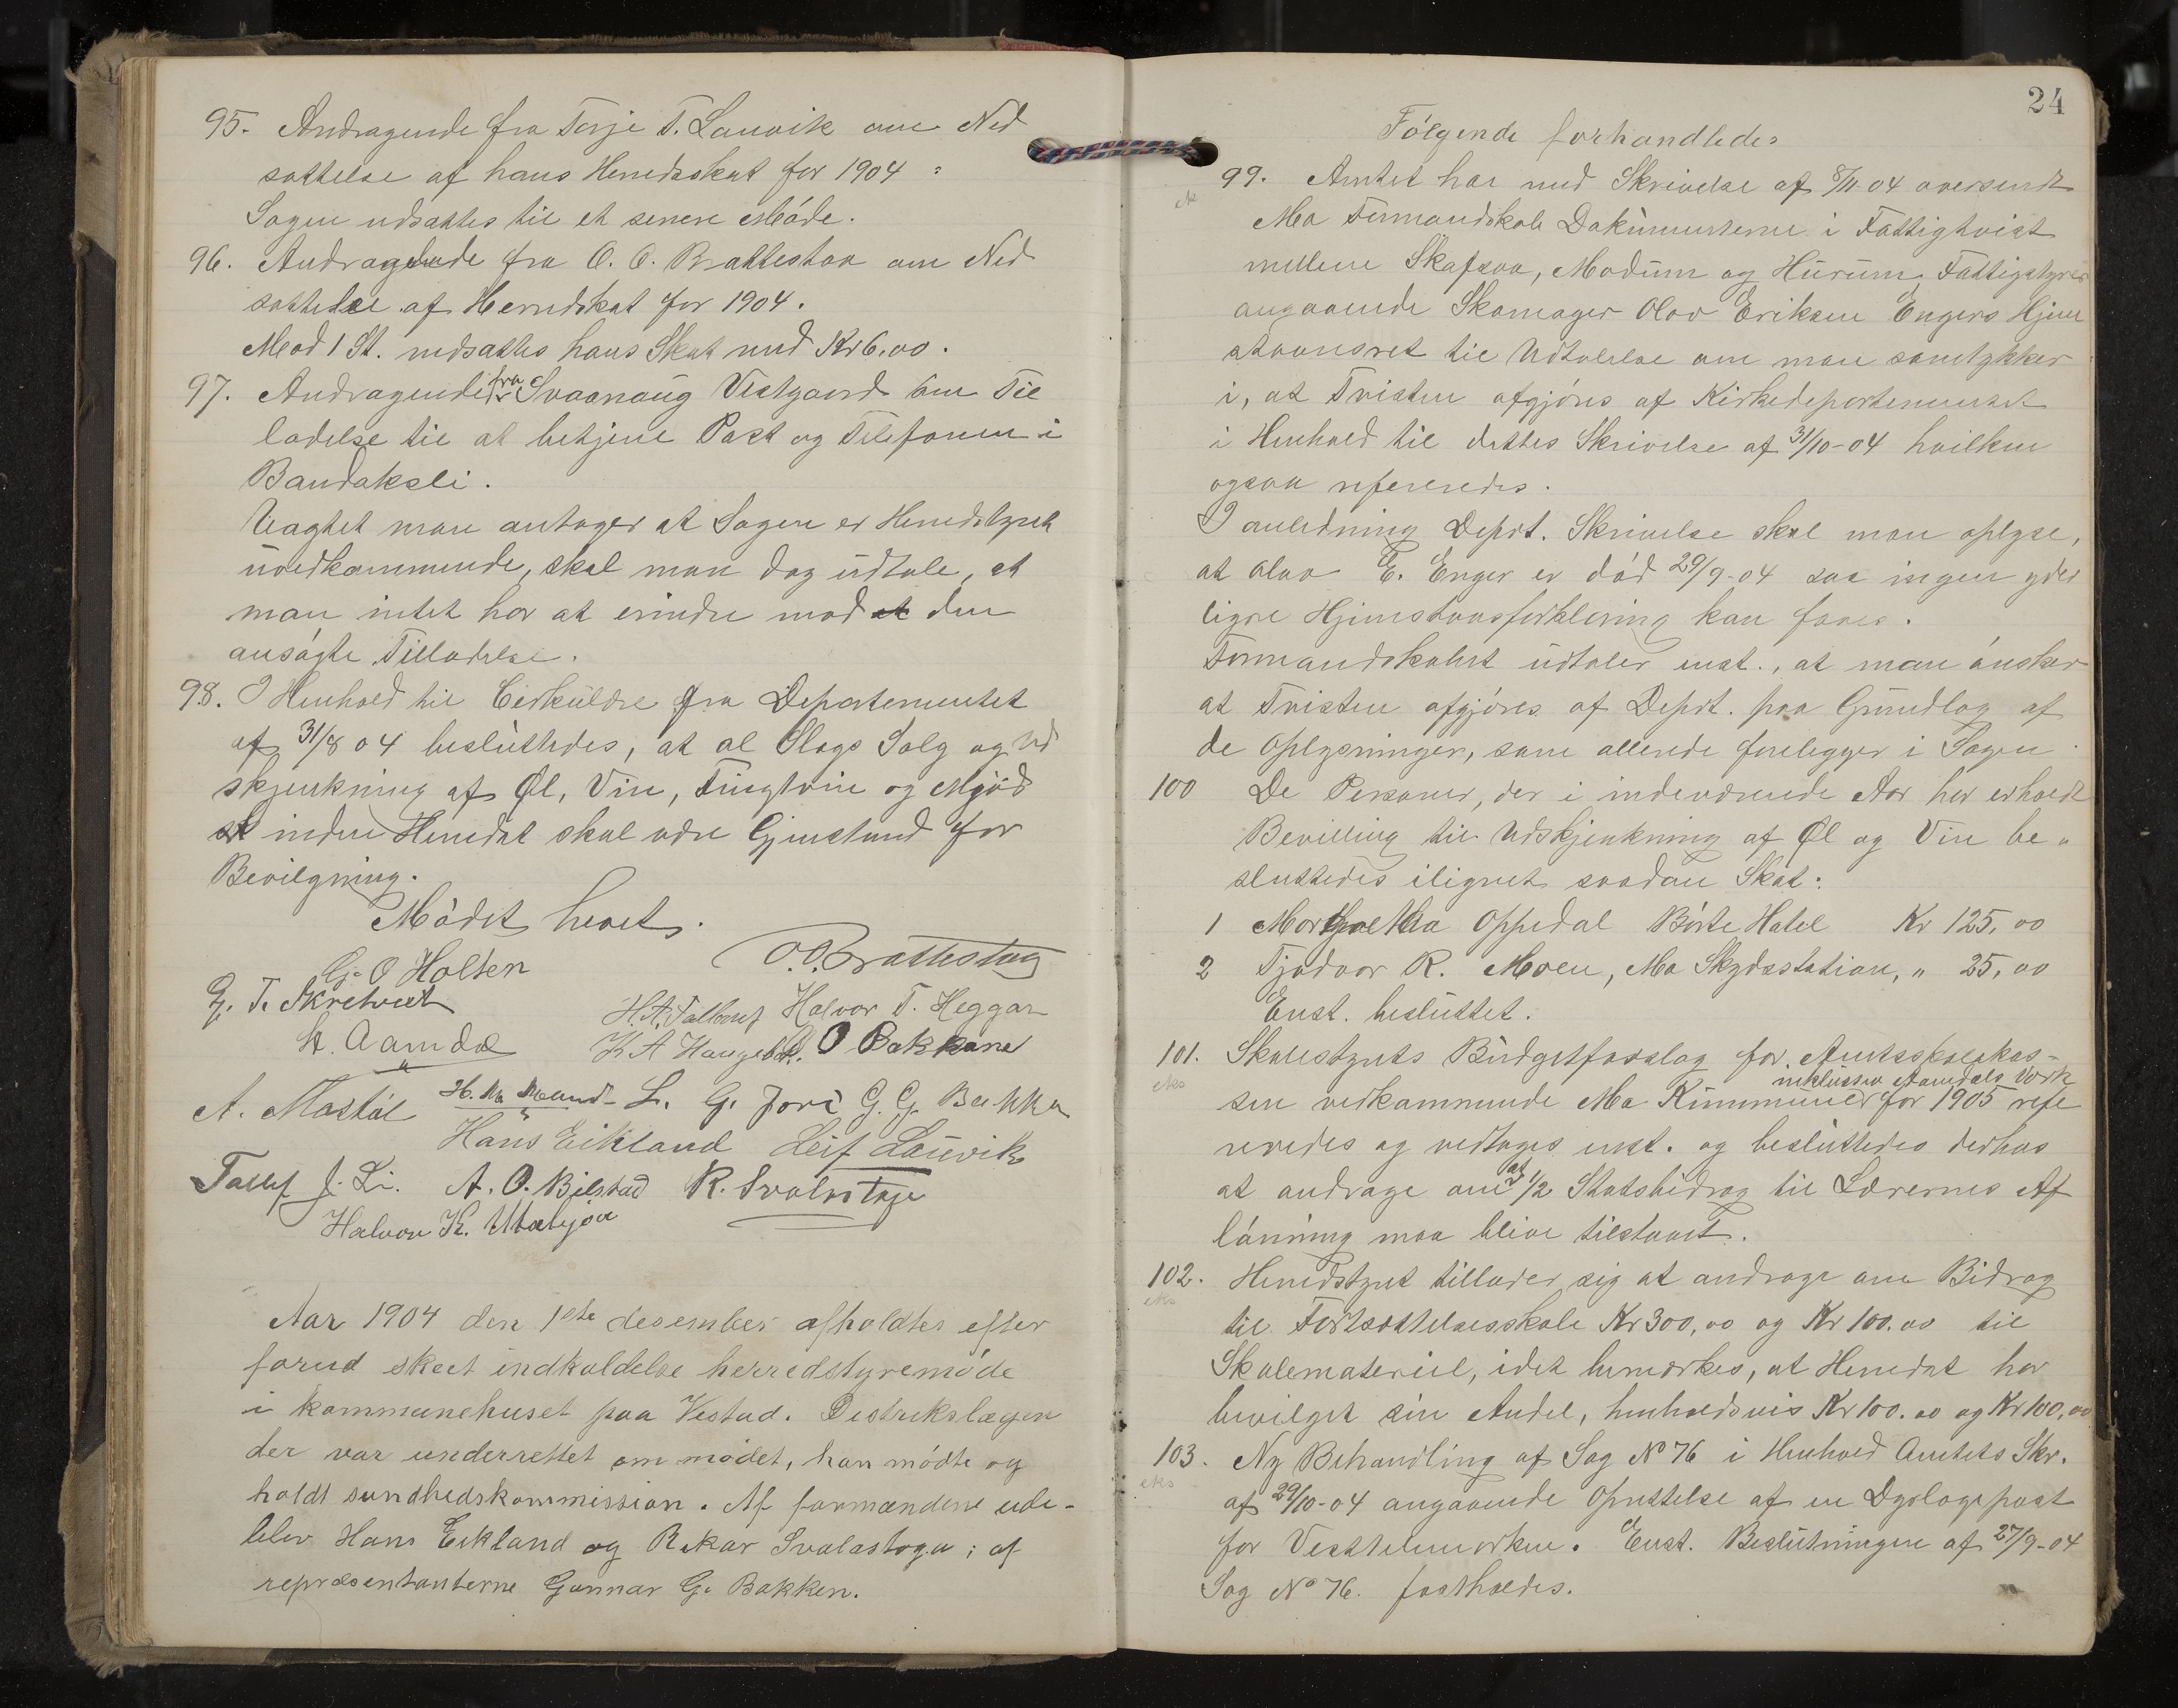 95. Andragende fra Torje T. Lauvik om Ned
sættelse af hans Herredsskat for 1904 :
Sagen udsættes til et senere Møde.
96. Andragende fra O. O. Brattestaa om Ned
sættelse af Herredskat for 1904.
Mod 1 St. nedsættes hans Skat med Kr 6,00.
97. Andragende fra Svaanaug Vestgaard om Til
ladelse til at betjene Post og Telefonen i
Bandaksli.
Uagtet man antager at Sagen er Herredstyret
uvedkommende, skal man dog udtale, at
man intet har at erindre mod at den
ansøgte Tilladelse.
98. I Henhold til Cirkulære fra Departementet
af 31/8 04 besluttedes, at al Slags Salg og Ud
skjenkning af Øl, Vin, Frugtvin og Mjød
inden Herredet skal være Gjenstand for
Bevilgning.
Mødet hevet.
G. O Holten
O. O. Brattestaa
G. T. Skretveit
H. A. Tallevsj Halvor T. Heggar
H. Aamdal
K A Haugeli. O Bakkane
A. Mostøl H. M. Moland L. G. Jore G. G. Bakka
Hans Eikland Leif Lauvik
Tallef J. Li. A. O. Bilstad R. Svalastoge
Halvor K. Utabjoa
Aar 1904 den 1ste desember afholdtes efter
forud skeet indkaldelse herredstyremøde
i kommunehuset paa Vestad. Distrikslægen
der var underrettet om mødet, han mødte og
holdt sundhedskommission. Af formændene ude-
blev Hans Eikland og Rikar Svalastoga; af
repræsentanterne Gunnar G. Bakken.
24
Følgende forhandledes
99. Amtet har med Skrivelse af 8/11 04 oversendt
ek
Mo Formandskab Dokumenterne i Fattigtvist
mellem Skafsaa, Modum og Hurum Fattigstyrer
angaaende Skomager Olav Eriksen Engers Hjem
stavnsret til Udtalelse om man samtykker
i, at Tvisten afgjøres af Kirkedepartementet
i Henhold til dettes Skrivelse af 31/10-04 hvilken
ogsaa refereredes.
I anledning Deprt. Skrivelse skal man oplyse,
at Olav E. Enger er død 29/9-04 saa ingen yder
ligre Hjemstavnsforklaring kan faaes.
Formandskabet udtaler enst., at man ønsker
at Tvisten afgjøres af Deprt. paa Grundlag af
de Oplysninger, som allerede foreligger i Sagen.
100 De Personer, der i indeværende Aar har erholdt
Bevilling til Udskjenkning af Øl og Vin be„
sluttedes ilignet saadan Skat:
1 Margretha Oppedal Børte Hotel Kr 125,00
2 Tjodvor R. Moen, Mo Skydsstation, „ 25,00
Enst. besluttet.
101. Skolestyrets Budgetforslag for Amtsskolekas-
eks
inklusive Aamdals Verk
sen vedkommende Mo Kommune for 1905 refe
reredes og vedtages enst. og besluttedes derhos
at andrage om at 1/2 Statsbidrag til Lærernes Af
lønning maa blive tilstaaet.
102. Herredstyret tillader sig at andrage om Bidrag
eks
til Fortsættelsesskole Kr 300,00 og Kr 100.00 til
Skolemateriel, idet bemærkes, at Herredet har
bevilget sin Andel, henholdsvis Kr 100.00 og Kr 100,00
103. Ny Behandling af Sag No 76 i Henhold Amtets Skr.
eks
af 29/10-04 angaaende Oprettelse af en Dyrlægepost
for Vesttelemarken. Enst. Beslutningen af 27/9-04
Sag No 76. fastholdes.